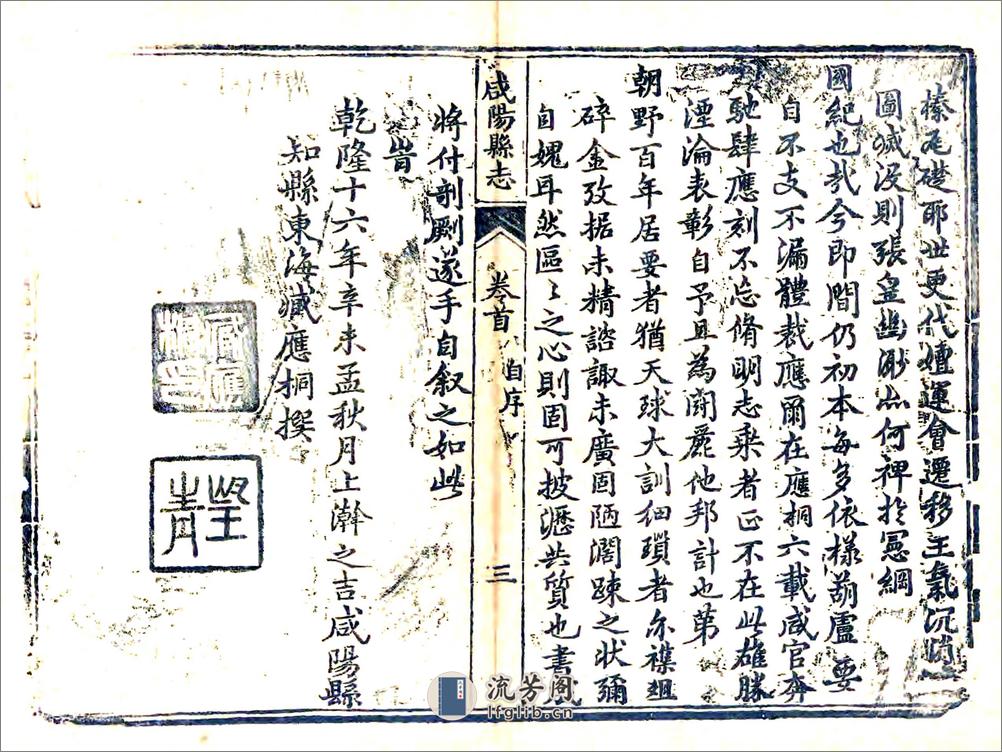 榛瓦礎耶世更代嬗運會遷移王氣沉消
圖滅沒則張皇幽渺亦何裨扵憲綱
國紀也㢤今即間仍初本每多依様葫盧要
自不支不漏體裁應爾在應桐六載咸官奔
馳肆應刻不忘脩明志乗者正不在此雄勝
湮淪表彰自予且為開麗他邦計也第
朝野百年居要者猶天球大訓細瑣者亦襍俎
碎金攷据未精諮諏未廣固陋濶踈之状彌
自媿耳然區〻之心則固可披瀝共質也書成
咸陽縣志
卷首
自序
三
將付剞劂遂手自叙之如此
旹
乾隆十六年辛未孟秋月上澣之吉咸陽縣
知縣東海臧應桐撰
臧應桐
流芳阁
lfglib.cn